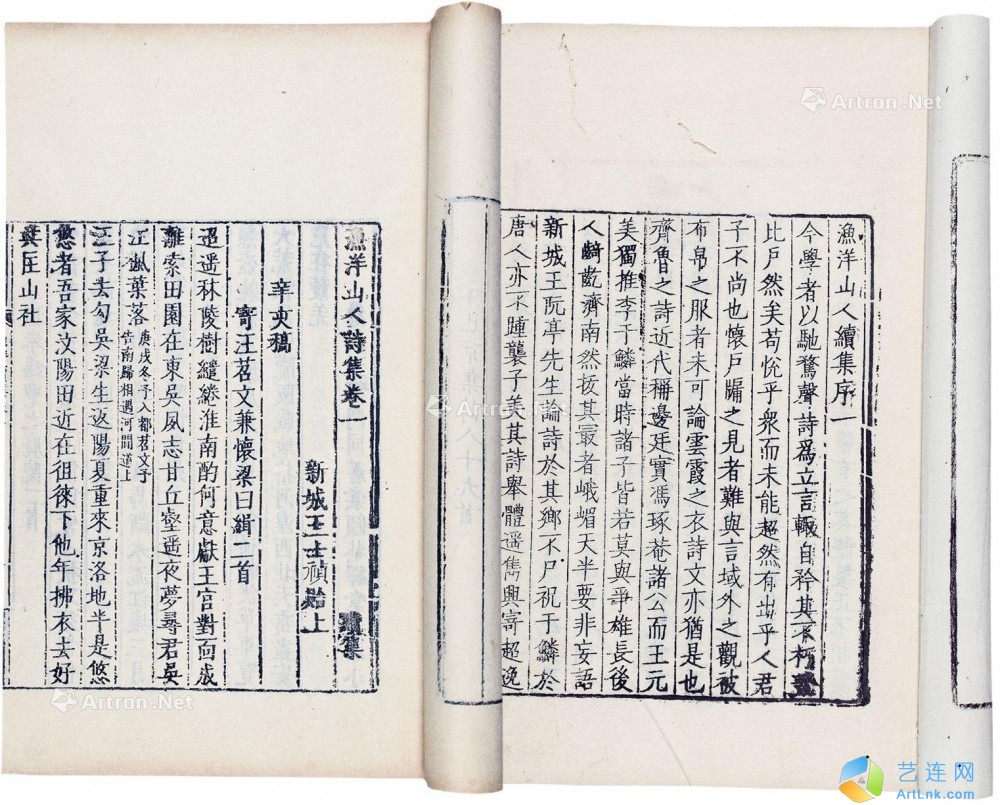 漁洋山人續集序
今學者以馳騖聲詩為立言輙自矜其不朽
比戶然矣苟悅乎衆而未能超然有出乎人君
子不尚也懷戶牖之見者難與言域外之觀被
布帛之服者未可論雲霞之衣詩文亦猶是也
齊魯之詩近代稱邊廷實馮琢菴諸公而王元
美獨推李于鱗當時諸子皆若莫與爭雄長後
人齮齕濟南然拔其最者峨嵋天半要非妄語
新城王阮亭先生論詩於其鄉不尸祝于鱗於
唐人亦不踵襲子美其詩舉體遥雋興寄超逸
漁洋山人詩集卷一 續集
新城王士禛貽上
辛亥稿
寄汪苕文兼懷梁曰緝二首
迢遥秣陵樹繾綣淮南酌何意獻王宫對面成
離索田園在東吳夙志甘丘壑遥夜夢尋君吳
江楓葉落庚戌冬予入都苕文予告南歸相遇河間道上
江子去勾吳梁生返陽夏重來京洛地半是悠
悠者吾家汶陽田近在徂徠下他年拂衣去好
與在山社
Artron.Net
Artron.Net
Artron.Net
艺连网
ArtLnk.com